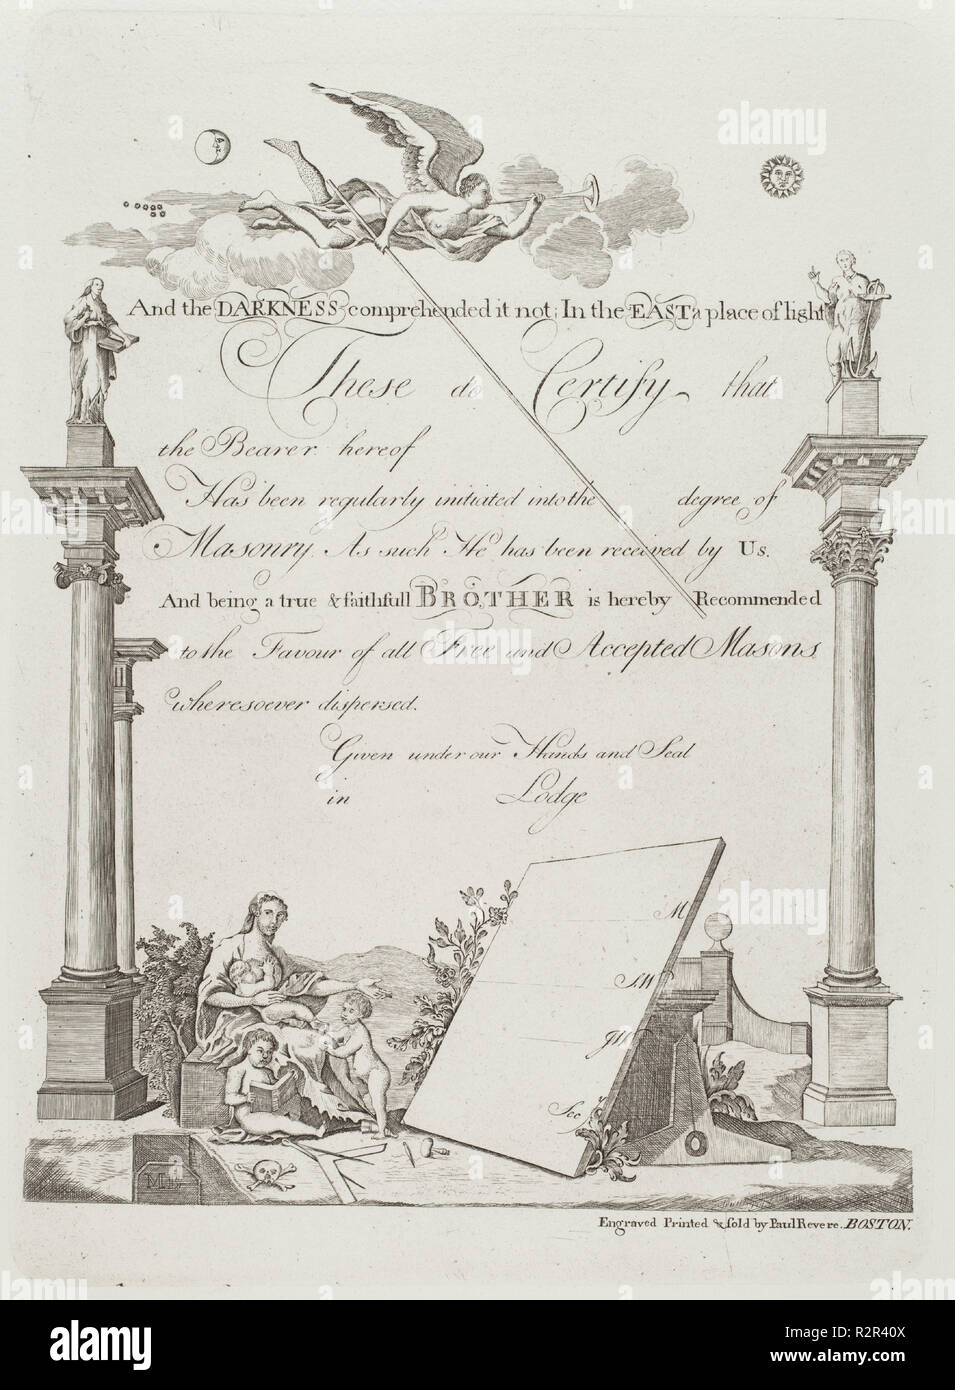 And the DARKNESS comprehended it not; In the EAST a place of light
These do Certify that
the Bearer hereof
Has been regularly initiated into the degree of
Masonry. As such He has been received by Us.
And being a true & faithfull BROTHER is hereby Recommended
to the Favour of all Free and Accepted Masons
wheresoever dispersed.
Given under our Hands and Seal
in Lodge
M
S.W
J.W
Sec
Engraved Printed & sold by Paul Revere. BOSTON.
alamy
alamy stock photo
R2R40X
www.alamy.com